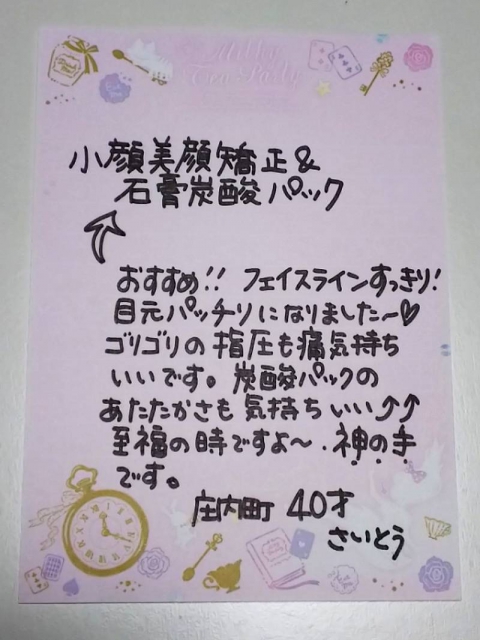 Milky
Tea Party
小顔美顔矯正&
石膏炭酸パック
おすすめ!! フェイスラインすっきり!
目元パッチリになりました~♡
ゴリゴリの指圧も痛気持ち
いいです。炭酸パックの
あたたかさも気持ちいい⤴⤴
至福の時ですよ~。神の手
です。
庄内町 40才
さいとう